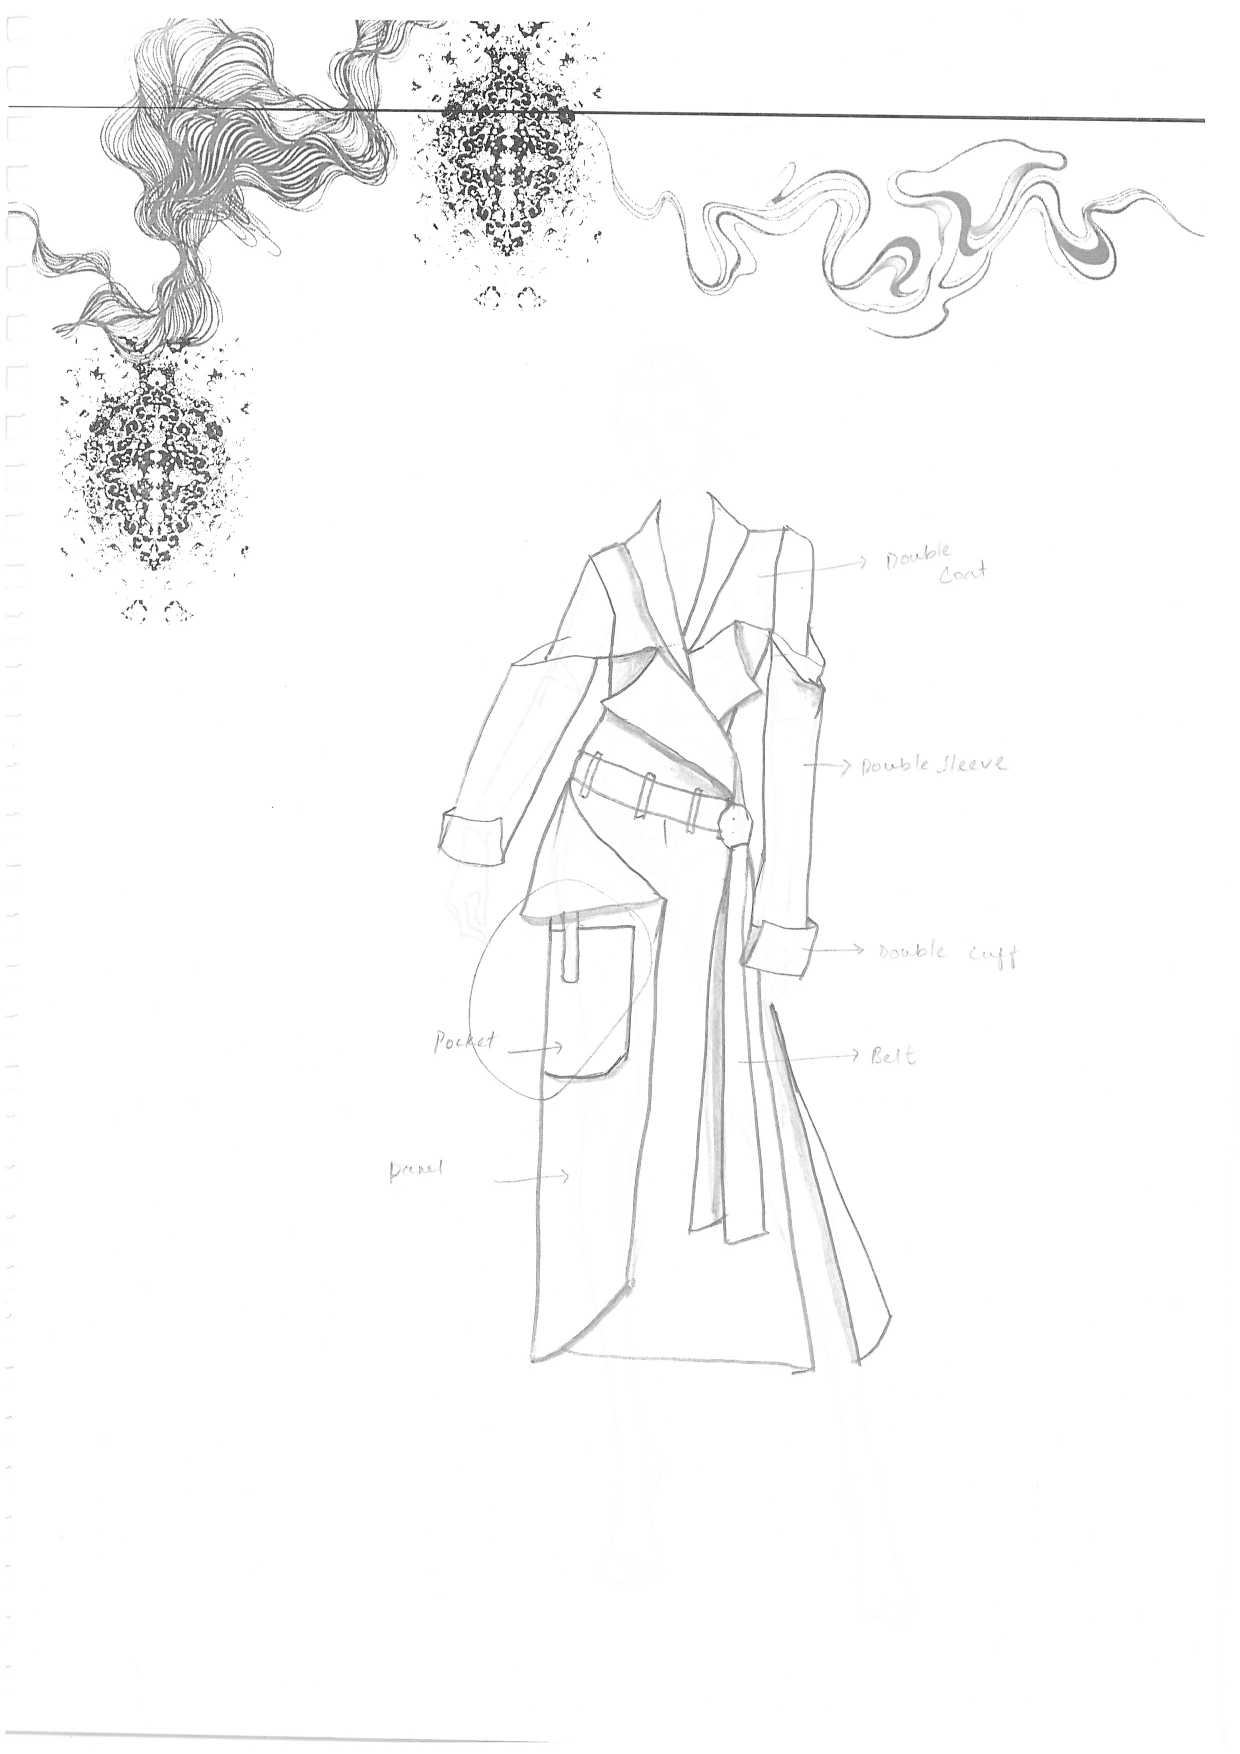 Double
Coat
Double Sleeve
Double Cuff
Pocket
Belt
Panel